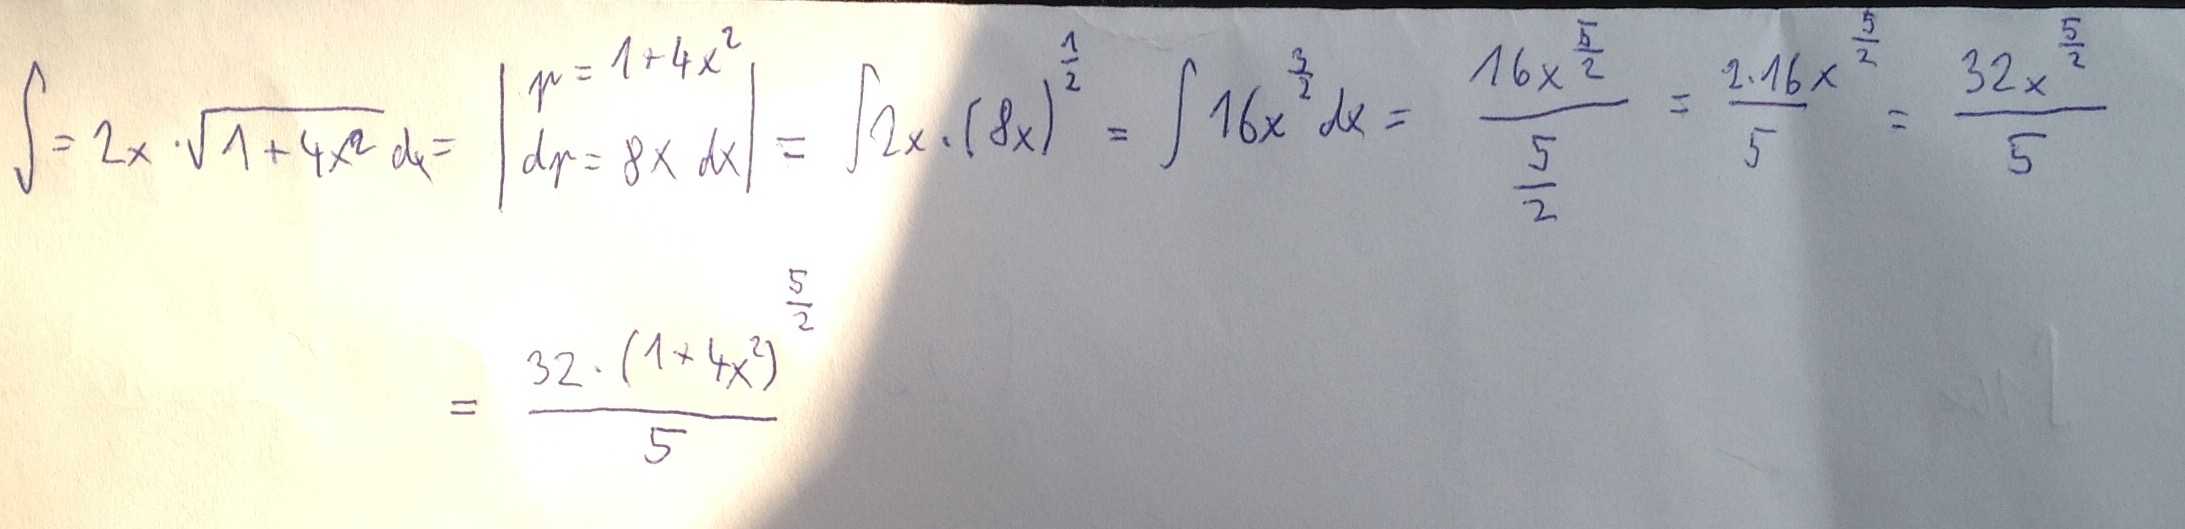 ∫ = 2x · √(1+4x²) dx = | p = 1+4x² dp = 8x dx | = ∫ 2x · (8x)^(1/2) = ∫ 16x^(3/2) dx = 16x^(5/2) / (5/2) = 2·16x^(5/2) / 5 = 32x^(5/2) / 5
= 32 · (1+4x²)^(5/2) / 5